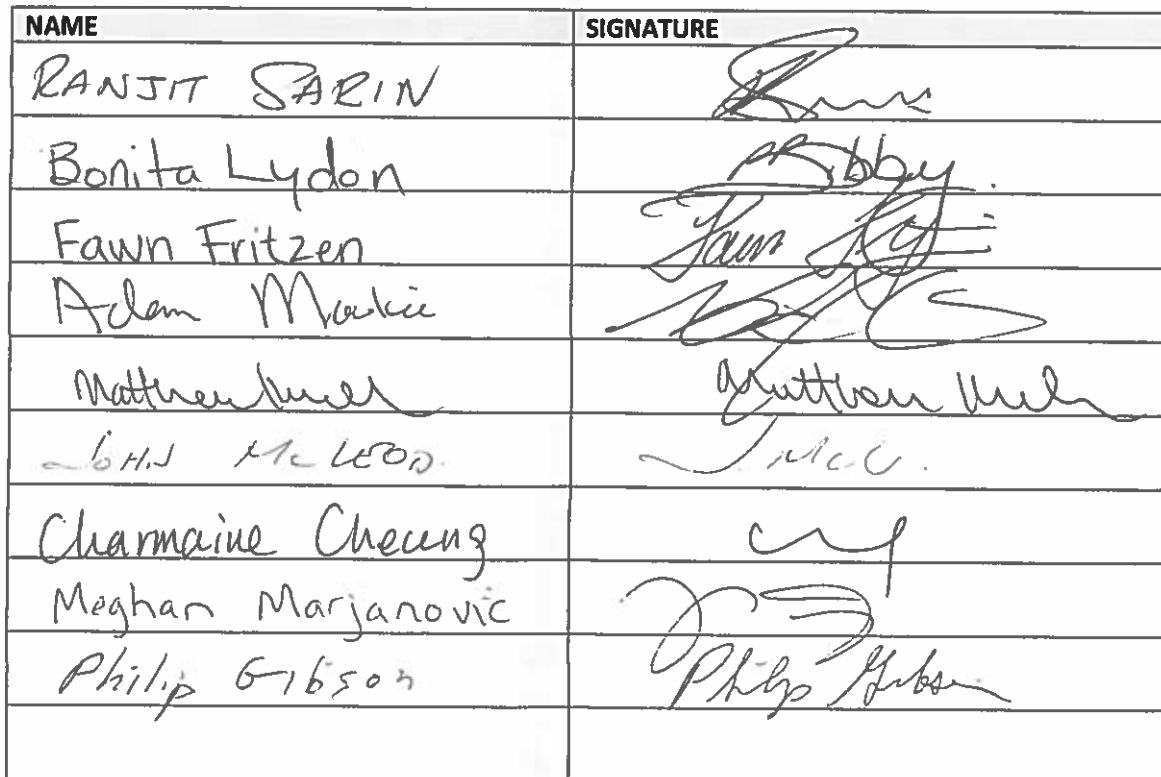 NAME SIGNATURE
RANJIT SARIN
Bonita Lydon Bibby
Fawn Fritzen Fawn
Adam Mackie
Matthew Matthew
JOHN McLEOD J McL
Charmaine Cheung
Meghan Marjanovic
Philip Gibson Philip Gibson